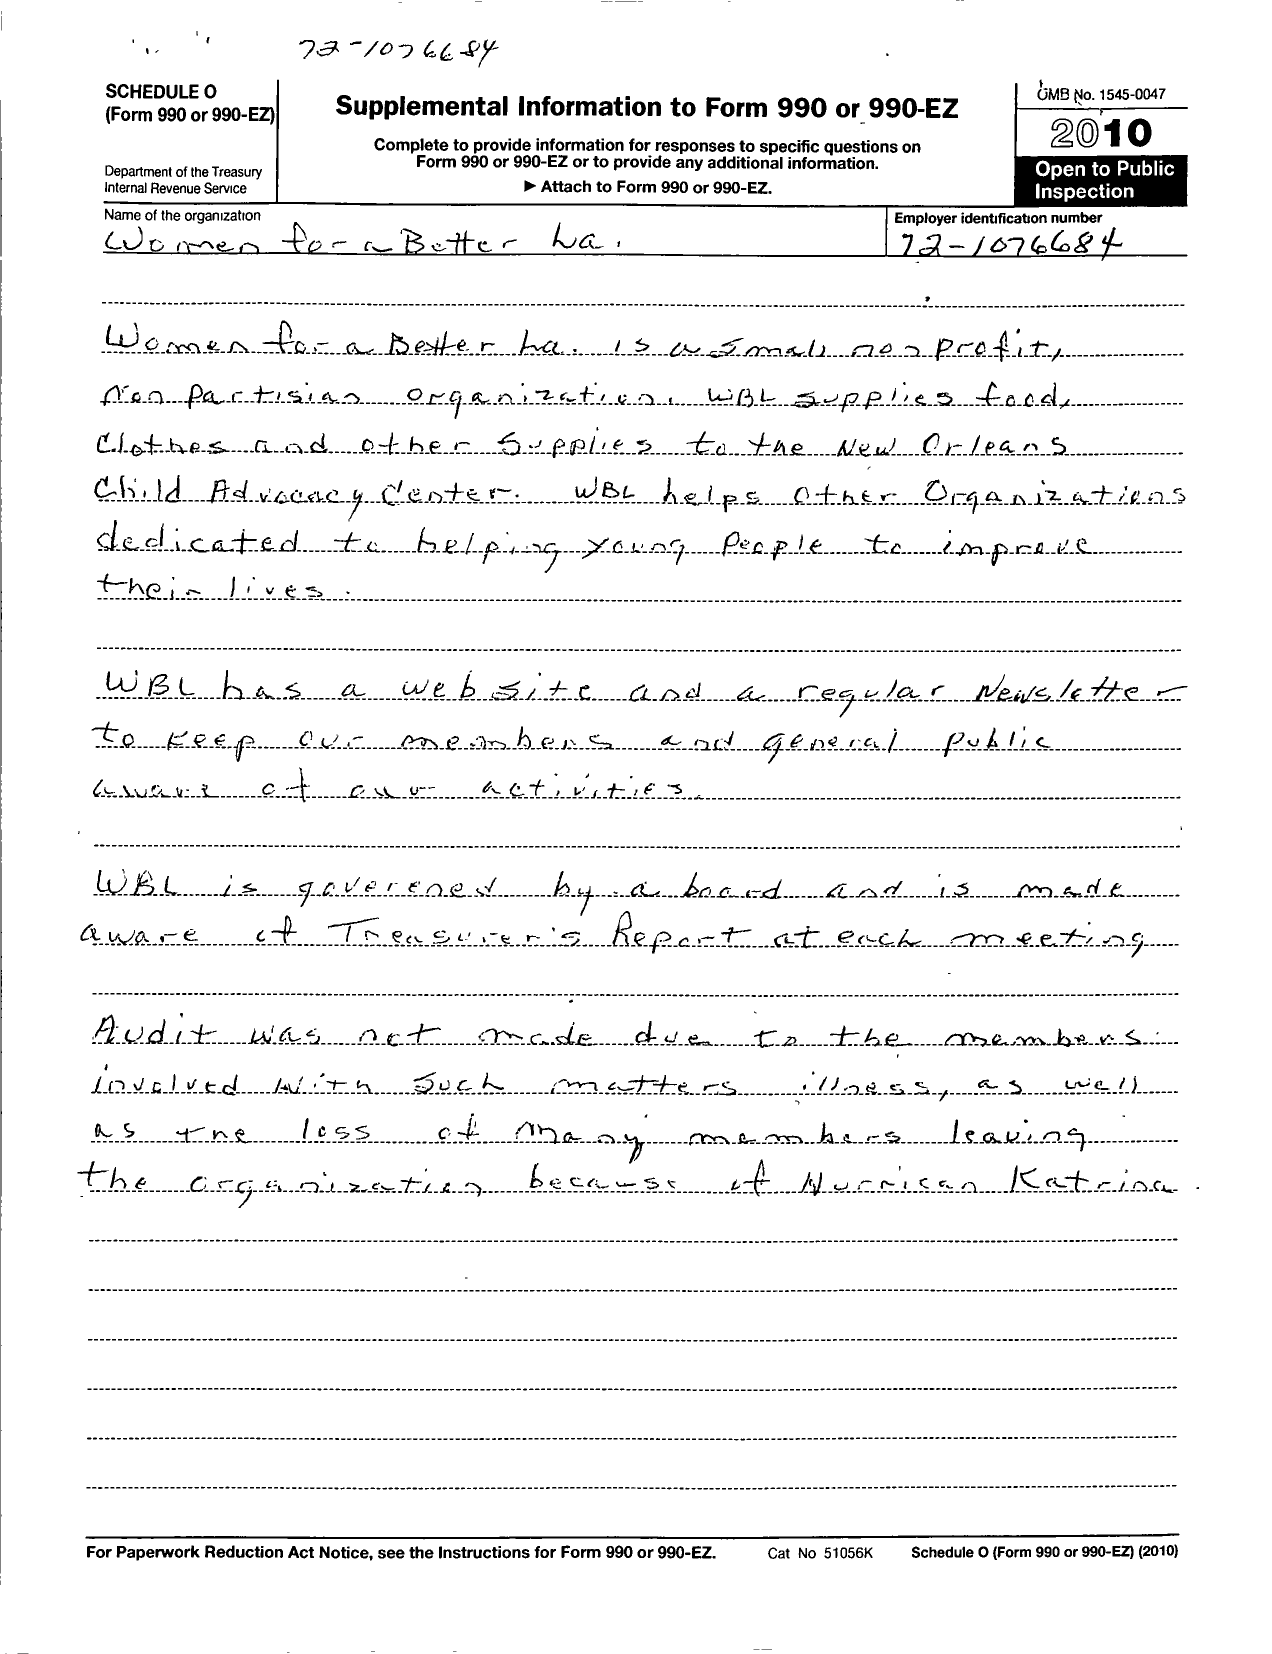 72-1076684
SCHEDULE O
(Form 990 or 990-EZ)
Department of the Treasury
Internal Revenue Service
Supplemental Information to Form 990 or 990-EZ
Complete to provide information for responses to specific questions on
Form 990 or 990-EZ or to provide any additional information.
▶ Attach to Form 990 or 990-EZ.
OMB No. 1545-0047
2010
Open to Public
Inspection
Name of the organization
Women for a Better La.
Employer identification number
72-1076684
Women for a Better La. is a small non profit,
Non Partisian organization. WBL supplies food,
Clothes and other Supplies to the New Orleans
Child Advocacy Center. WBL helps other Organizations
dedicated to helping young People to improve
their lives.
WBL has a web site and a regular Newsletter
to keep our members and general public
aware of our activities.
WBL is goverened by a board and is made
aware of Treasurer's Report at each meeting
Audit was not made due to the members
involved with such matters illness, as well
as the loss of many members leaving
the organization because of Hurrican Katrina.
For Paperwork Reduction Act Notice, see the Instructions for Form 990 or 990-EZ.
Cat No 51056K
Schedule O (Form 990 or 990-EZ) (2010)